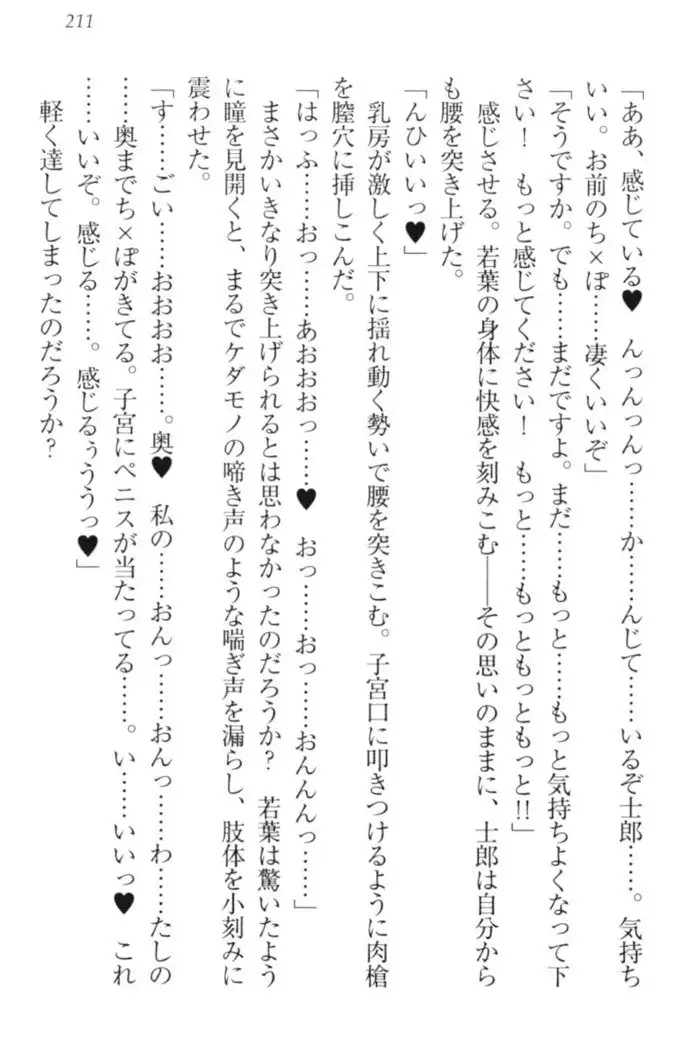 211
「ああ、感じている♥　んっんっんっ……か……んじて……いるぞ士郎……。気持ち
いい。お前のち×ぽ……凄くいいぞ」
「そうですか。でも……まだですよ。まだ……もっと……もっと気持ちよくなって下
さい！　もっと感じてください！　もっと……もっともっともっと!!」
　感じさせる。若葉の身体に快感を刻みこむ――その思いのままに、士郎は自分から
も腰を突き上げた。
「んひいいっ♥」
　乳房が激しく上下に揺れ動く勢いで腰を突きこむ。子宮口に叩きつけるように肉槍
を膣穴に挿しこんだ。
「はっふ……おっ……あおおおっ……♥　おっ……おっ……おんんんっ……」
　まさかいきなり突き上げられるとは思わなかったのだろうか？　若葉は驚いたよう
に瞳を見開くと、まるでケダモノの啼き声のような喘ぎ声を漏らし、肢体を小刻みに
震わせた。
「す……ごい……おおおお……。奥♥　私の……おんっ……おんっ……わ……たしの
……奥までち×ぽがきてる。子宮にペニスが当たってる……。い……いいっ♥　これ
……いいぞ。感じる……。感じるぅううっ♥」
　軽く達してしまったのだろうか？